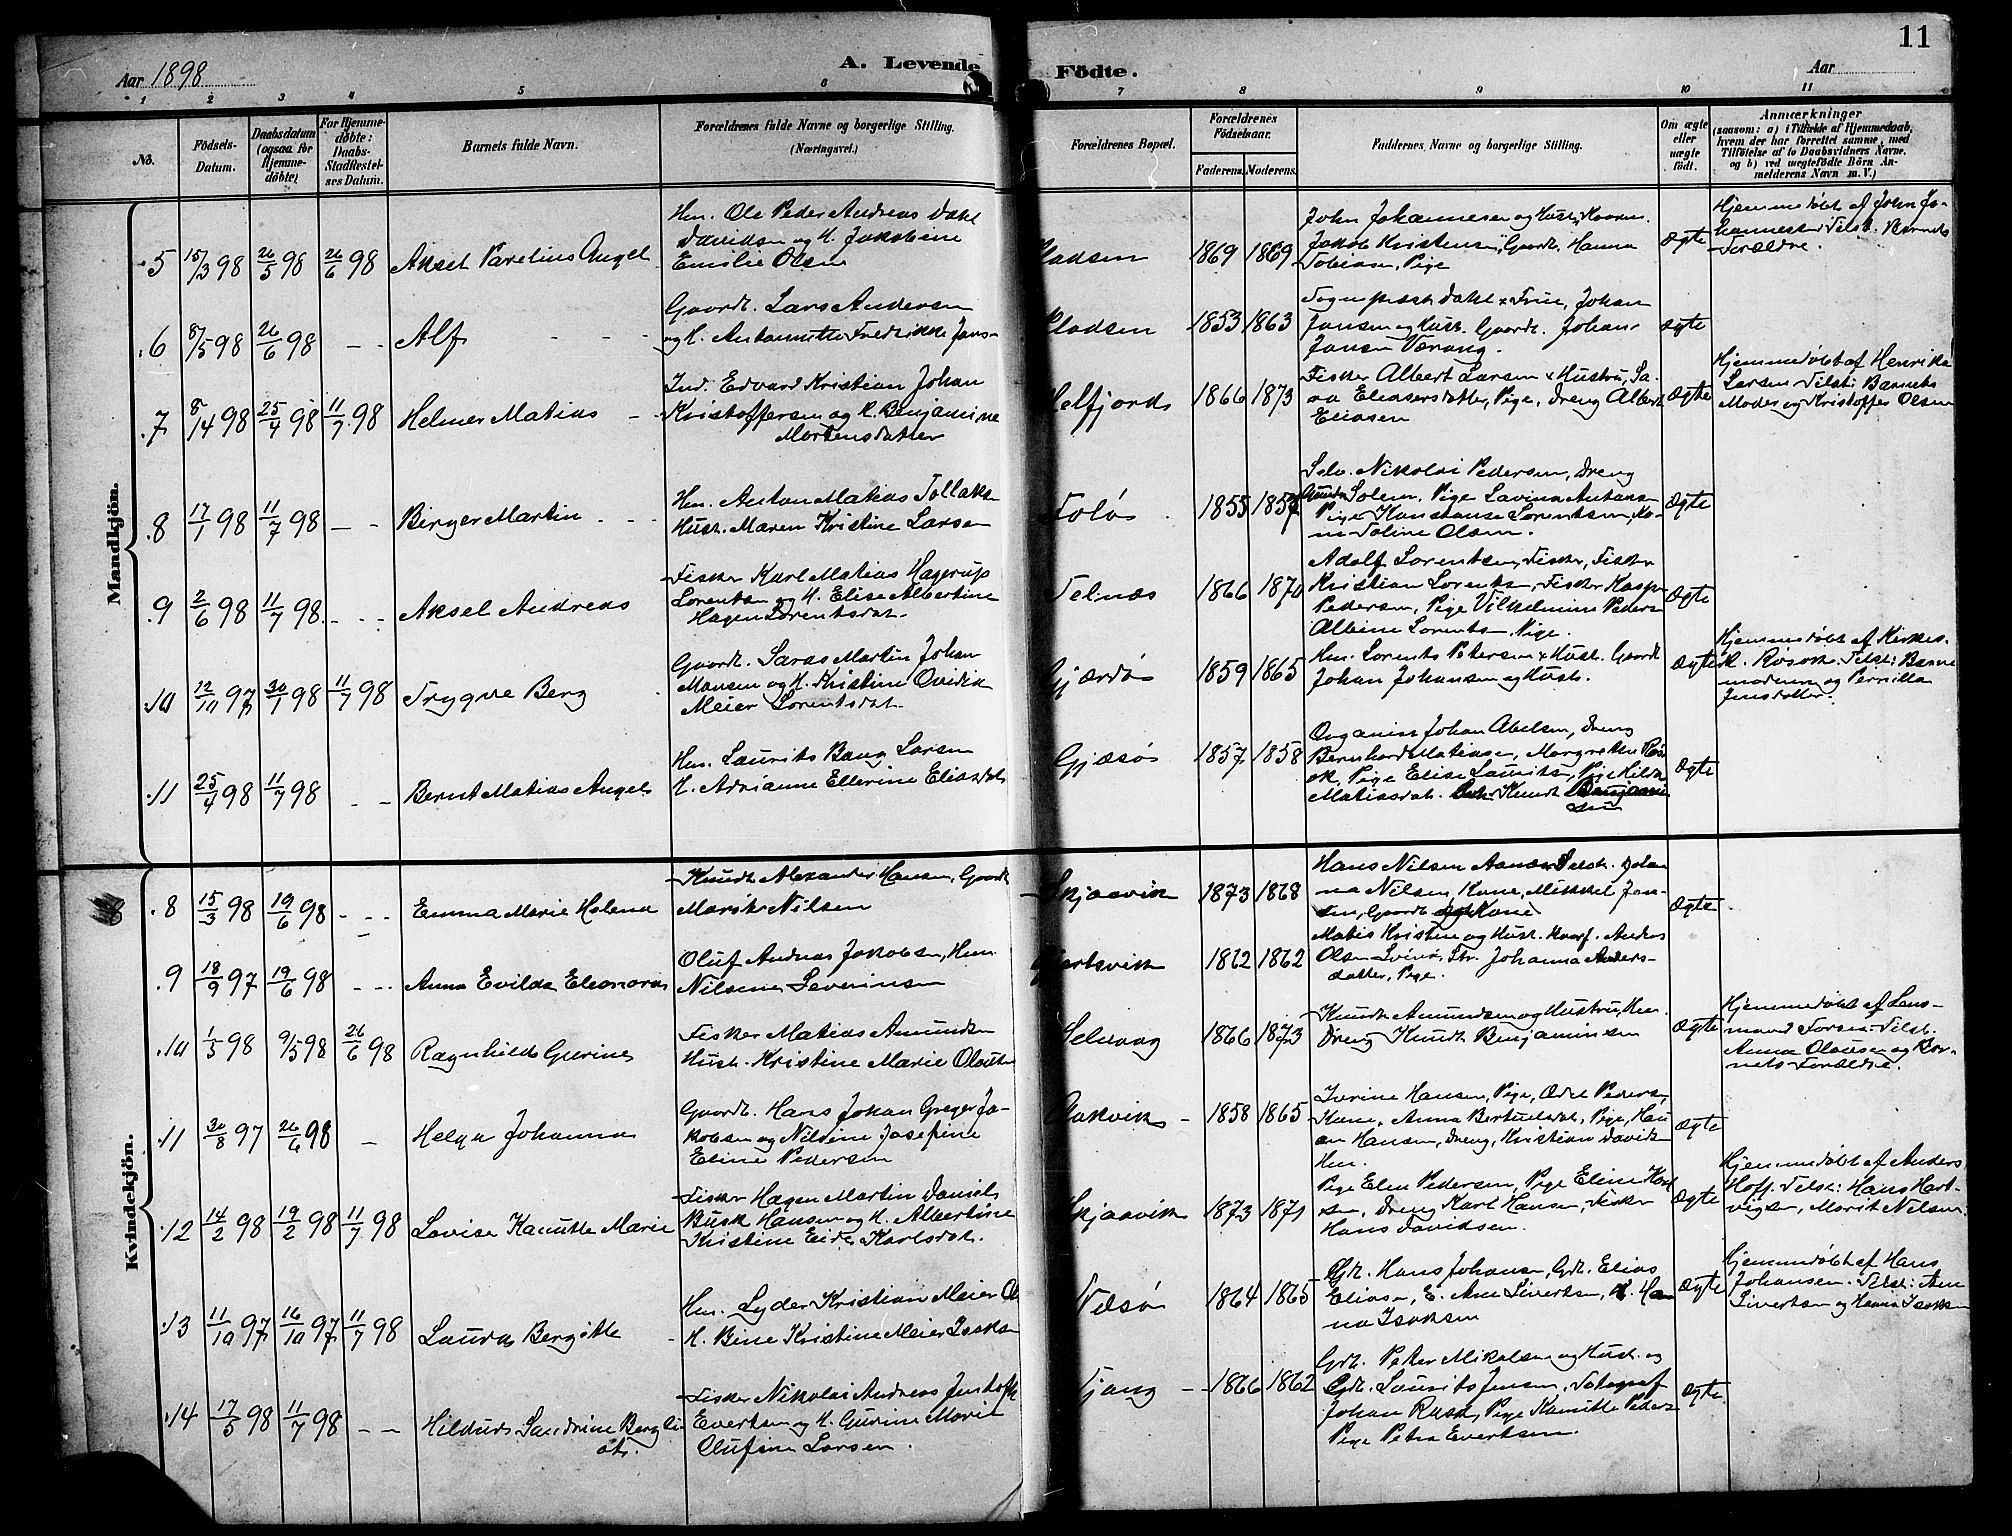 11
Aar 1898
A. Levende Födte.
Aar
1 2 3 4 5 6 7 8 9 10 11
No.
Födsels-
Datum.
Daabsdatum
(ogsaa for
Hjemme-
döbte)
For Hjemme-
döbte:
Daabs-
Stadfæstel-
ses Datum.
Barnets fulde Navn.
Forældrenes fulde Navne og borgerlige Stilling.
(Næringsvei.)
Forældrenes Bopæl.
Forældrenes
Födselsaar.
Faderens. Moderens.
Faddernes Navne og borgerlige Stilling.
Om ægte
eller
uægte
födt.
Anmærkninger
(saasom: a) i Tilfælde af Hjemmedaab,
hvem der har forrettet samme, med
Tilföielse af to Daabsvidners Navne,
og b) ved uægtefödte Börn An-
melderens Navn m. V.)
Mandkjön.
5 15/3 98 26/5 98 26/6 98 Aksel Parelius Angel
Hm. Ole Peder Andreas Dahl
Davidsen og H. Jakobine
Emilie Olsen
Pladsen 1869 1869
John Johannesen og Hust, Kaaren
Jakob Kristensen, Gaardb. Hanna
Tobiasen, Pige
ægte
Hjemmedøbt af John Jo-
hannesen Tilst. Barnets
Forældre.
6 8/5 98 26/6 98 - - Alf
Gaardb. Lars Andersen
og H. Antonnette Fredrikke Jans-
Pladsen 1853 1863
Sogneprest Dahl & Frue, Johan
Jansen og Hust. Gaardb. Johan
Jansen Værang.
ægte
7 8/14 98 25/4 98 11/7 98 Helmer Matias
Ind. Edvard Kristian Johan
Kristoffersen og H. Benjamine
Mortensdatter
Helfjord 1866 1873
Fisker Albert Larsen & Hustru, Sa-
ra Eliasersdatter, Pige, Dreng Albert
Eliasen
ægte
Hjemmedøbt af Henrika
Larsen Tilst: Barnets
Moder og Kristoffer Olsen
8 17/1 98 11/7 98 - - Berger Martin
Hm. Anton Matias Tollaks
Hust. Maren Kristine Larsen
Tolø 1855 1857
Selv. Nikolai Pedersen, Dreng
Solem, Pige Lavina Antons
Pige Konstanse Lorentsen, Ko-
ne Toline Olsen.
ægte
9 2/6 98 11/7 98 - - - Aksel Andreas
Fisker Karl Matias Hagerup
Lorentsen og H. Elise Albertine
Hagen Lorentsdat.
Telnæs 1866 1870
Adolf Lorentsen, Fisker, Fisker
Kristian Lorents, Fisker Kasper
Pedersen, Pige Vilhelmine Peders
Albine Lorents, Pige.
ægte
10 12/10 97 30/1 98 11/7 98 Trygve Berg
Gaardb. Saras Martin Johan
Monsen og H. Kristine Ovidia
Meier Lorentsdat.
Gjærdø 1859 1865
Hm. Lorents Petersen & Hust. Gaardb
Johan Johansen og Hust.
ægte
Hjemmedøbt af Kirkes.
K. Røsok. Tilst: Barne
moderen og Pernilla
Jensdatter.
11 25/4 98 11/7 98 - - Bernt Matias Angel
Hm. Laurits Bang Larsen
H. Adrianne Ellerine Eliasdat
Gjæsø 1857 1858
Organist Johan Abelsen, Dreng
Bernhard Matiasen, Margrethe Røs
ok, Pige Elise Laurits, Pige Hilda
Matiasdat. Knudt Benjamin
sen
ægte
Kvindekjön.
8 15/3 98 19/6 98 - - - Emma Marie Helena
Knudt Alexander Hansen, Gaardb
Marit Nilsen
Skjaavik 1873 1868
Hans Nilsen Aanæs Selvst. Johan
na Nilsen, Kone, Mikkel Jan-
sen, Gaardb og Kone
ægte
9 18/9 97 19/6 98 - - - Anna Evilda Eleonora
Oluf Andreas Jakobsen, Hm.
Nilsine Severinsen
1862 1862
Matis Kristine og Hust. Anders
Olsen Johanna Anders-
datter, Pige.
10 1/5 98 9/5 98 26/6 98 Ragnhild Gurine
Fisker Matias Amundsen
Hust. Kristine Marie Olsdat
Selvaag 1866 1873
Knudt Amundsen og Hustru, Hm.
Dreng Knudt Benjaminsen
ægte
Hjemmedøbt af Lens-
mand Forsen. Tilst.
Anna Olausen og Bar-
nets Forældre.
11 30/8 97 26/6 98 - Helga Johanna
Gaardb. Hans Johan Greger Ja-
kobsen og Nildine Josefine
Eline Pedersen
Aakvik 1858 1865
Iverine Hansen, Pige, Odel Peders,
Kone, Anna Bertuelsdat, Pige, Han
Hansen, Dreng, Kristian Davids
Hm.
ægte
12 14/2 98 19/2 98 11/7 98 Lovise Kamitte Marie
Fisker Hagen Martin Daniel
Busk Hansen og H. Albertine
Kristine Eide Karlsdat.
Skjaavik 1873 1871
Pige Elen Pedersen, Pige Eline Karl
sen, Dreng Karl Hansen, Fisker
Hans Davidsen.
ægte
Hjemmedøbt af Anders
Hoff. Tilst: Hans Hart-
vigsen, Marit Nilsen.
13 11/10 97 16/10 97 11/7 98 Laura Bergitte
Hm. Lyder Kristian Meier Ol
H. Bine Kristine Meier Isaks
Næsø 1864 1865
Gdb. Hans Johansen, Gdb. Elias
Eliasen, E. Ane Sivertsen, H. Han
na Isaksen
ægte
Hjemmedøbt af Hans
Johansen. Tilst: Ane
Sivertsen og Hanna Isaksen
14 17/5 98 11/7 98 - - Hildur Sandrine Bergli
ot.
Fisker Nikolai Andreas Jentoft
Evertsen og H. Gurine Marit
Olufine Larsen.
Tjong 1866 1862
Gdb. Peter Mikalsen og Hust. og
Gdb. Laurits Jensen, Fotograf
Johan Rask, Pige Kamitte Peders
Pige Petra Evertsen.
ægte